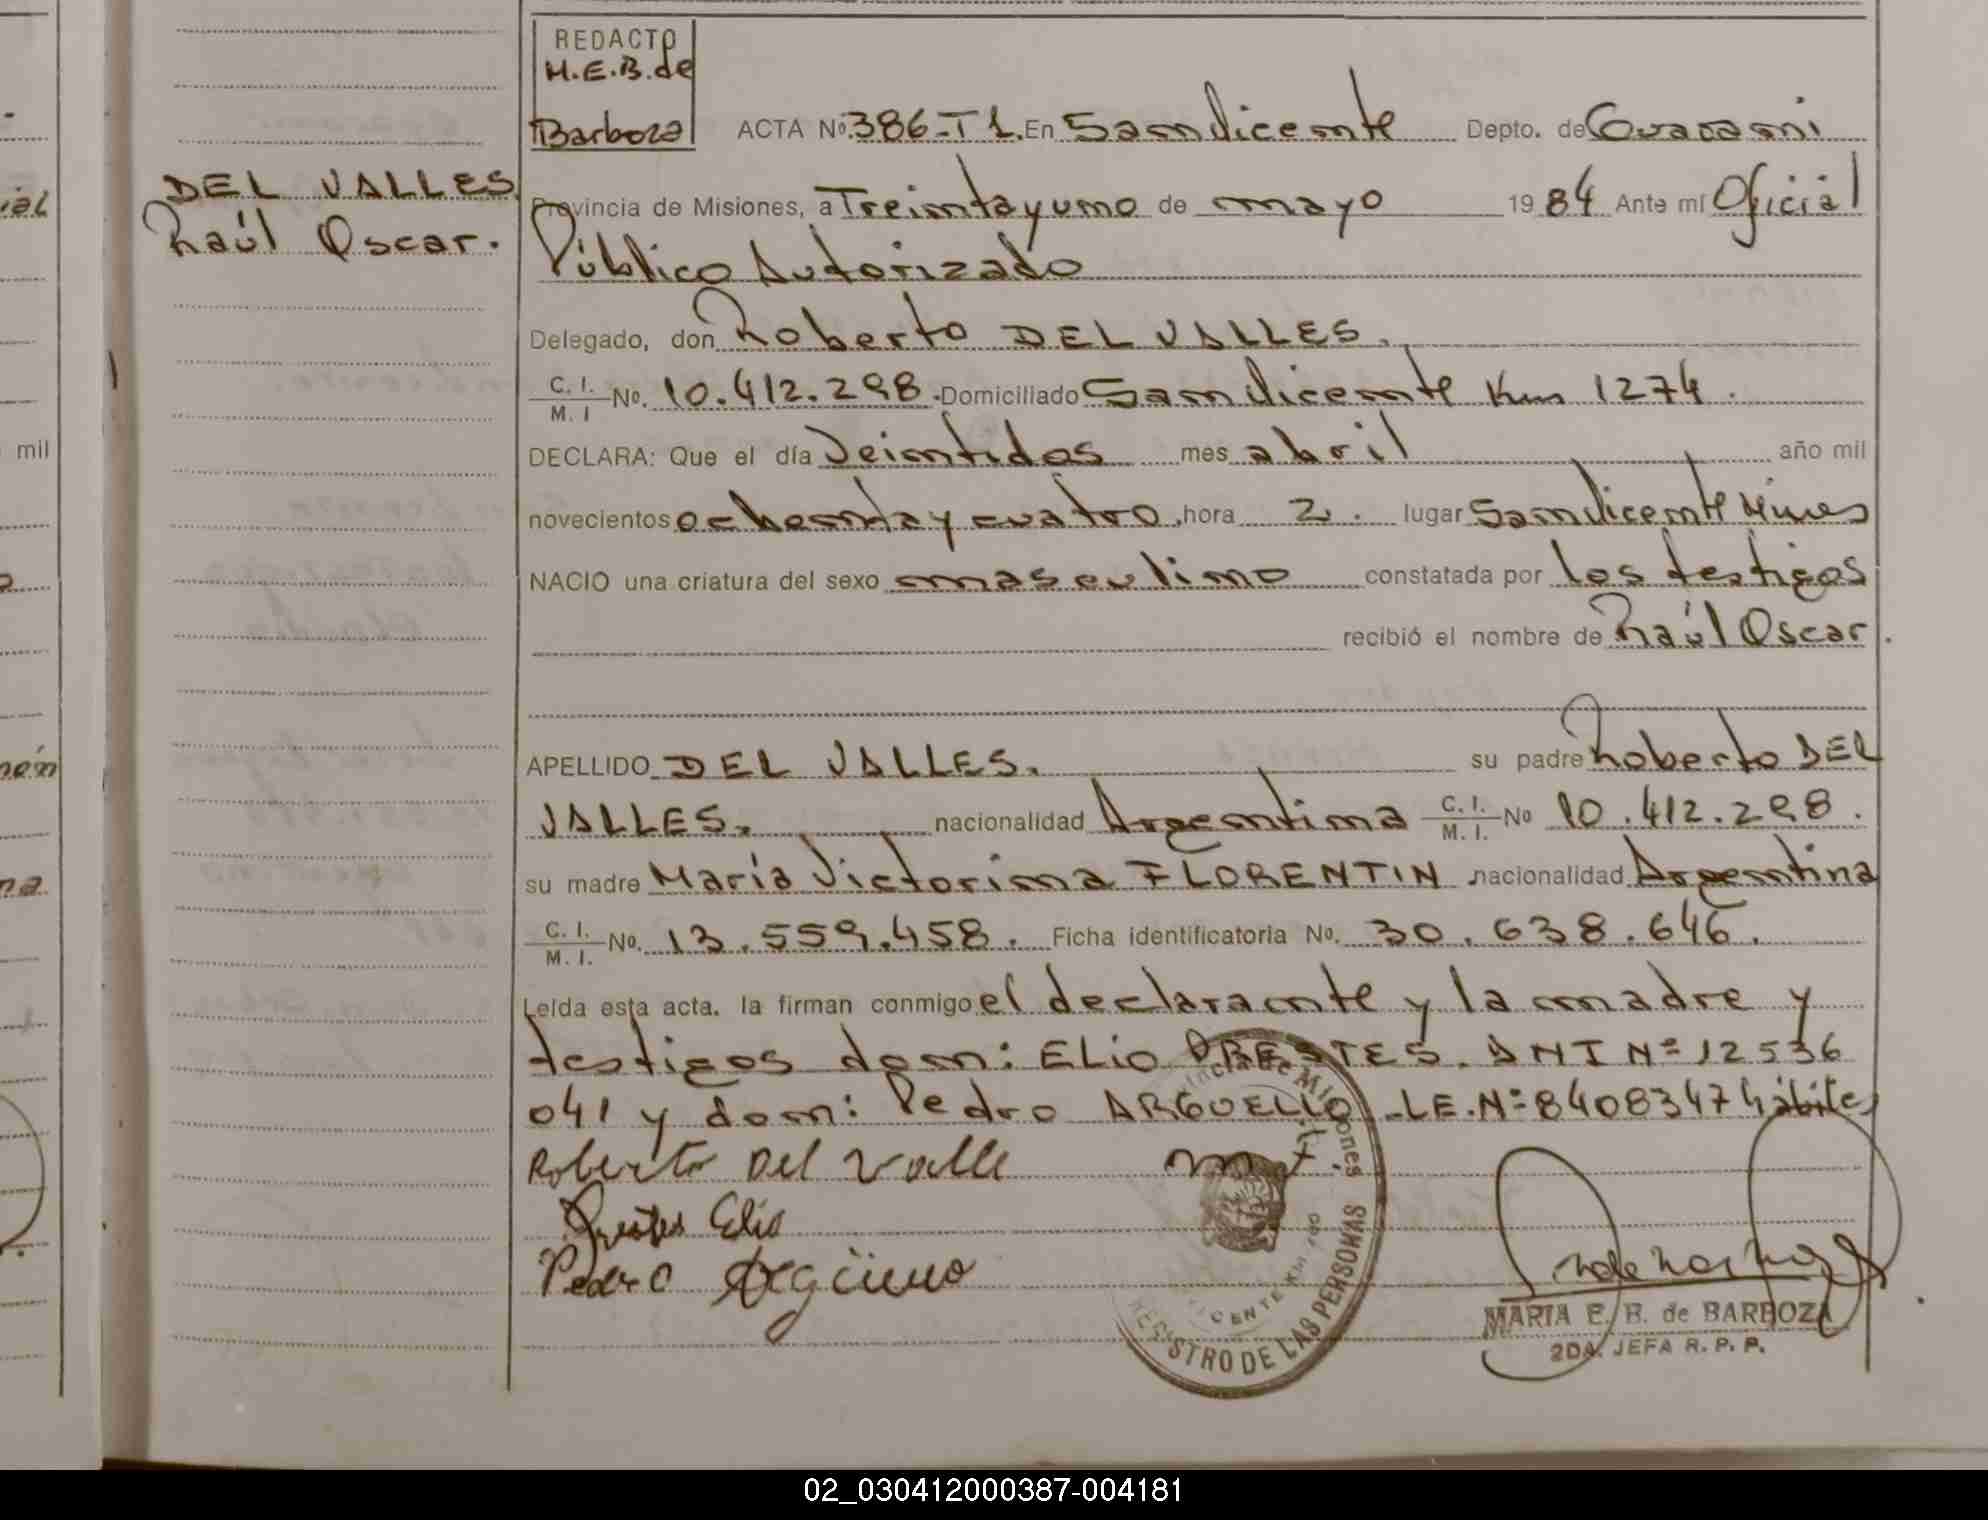 REDACTO
M.E.B. de
Barboza
ACTA Nº 386-T1. En San Vicente Depto. de Guarani
DEL VALLES
Raúl Oscar.
Provincia de Misiones, a Treinta y uno de mayo 1984 Ante mí Oficial
Público Autorizado
Delegado, don Roberto DEL VALLES.
C. I. / M. I Nº. 10.412.298. Domiciliado San Vicente Km 1274.
DECLARA: Que el día Veintidos mes abril año mil
novecientos ochenta y cuatro, hora 2. lugar San Vicente Mnes
NACIO una criatura del sexo masculino constatada por los testigos
recibió el nombre de Raúl Oscar.
APELLIDO DEL VALLES. su padre Roberto DEL
VALLES. nacionalidad Argentina C. I. / M. I. Nº 10.412.298.
su madre María Victorina FLORENTIN nacionalidad Argentina
C. I. / M. I. Nº. 13.559.458. Ficha identificatoria Nº. 30.638.646.
Leída esta acta. la firman conmigo el declarante y la madre y
testigos don: ELIO PRESTES. DNI Nº 12536
041 y don: Pedro ARGUELLO. LE. Nº 8408347 hábiles
Roberto Del Valle
Prestes Elio
Pedro Argüello
Provincia de Misiones
REGISTRO DE LAS PERSONAS
MARIA E. B. de BARBOZA
2DA. JEFA R. P. P.
mil
02_030412000387-004181